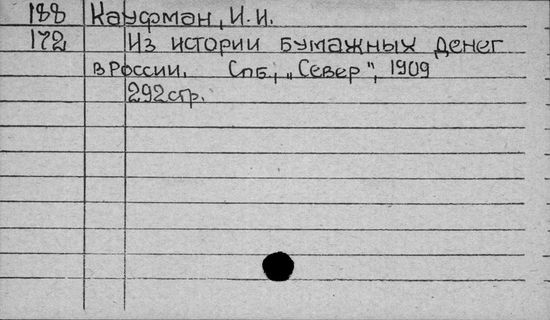 188 Кауфман, И. И.
172 Из истории бумажных денег
в России. Спб., „Север", 1909
292 стр.